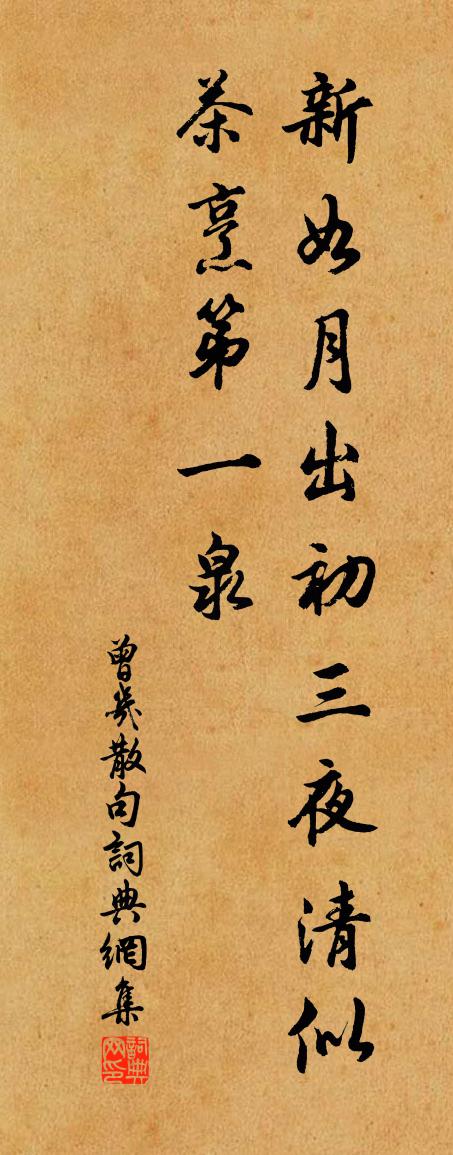 新如月出初三夜清似
茶烹第一泉
曾幾散句詞典網集
詞典网印